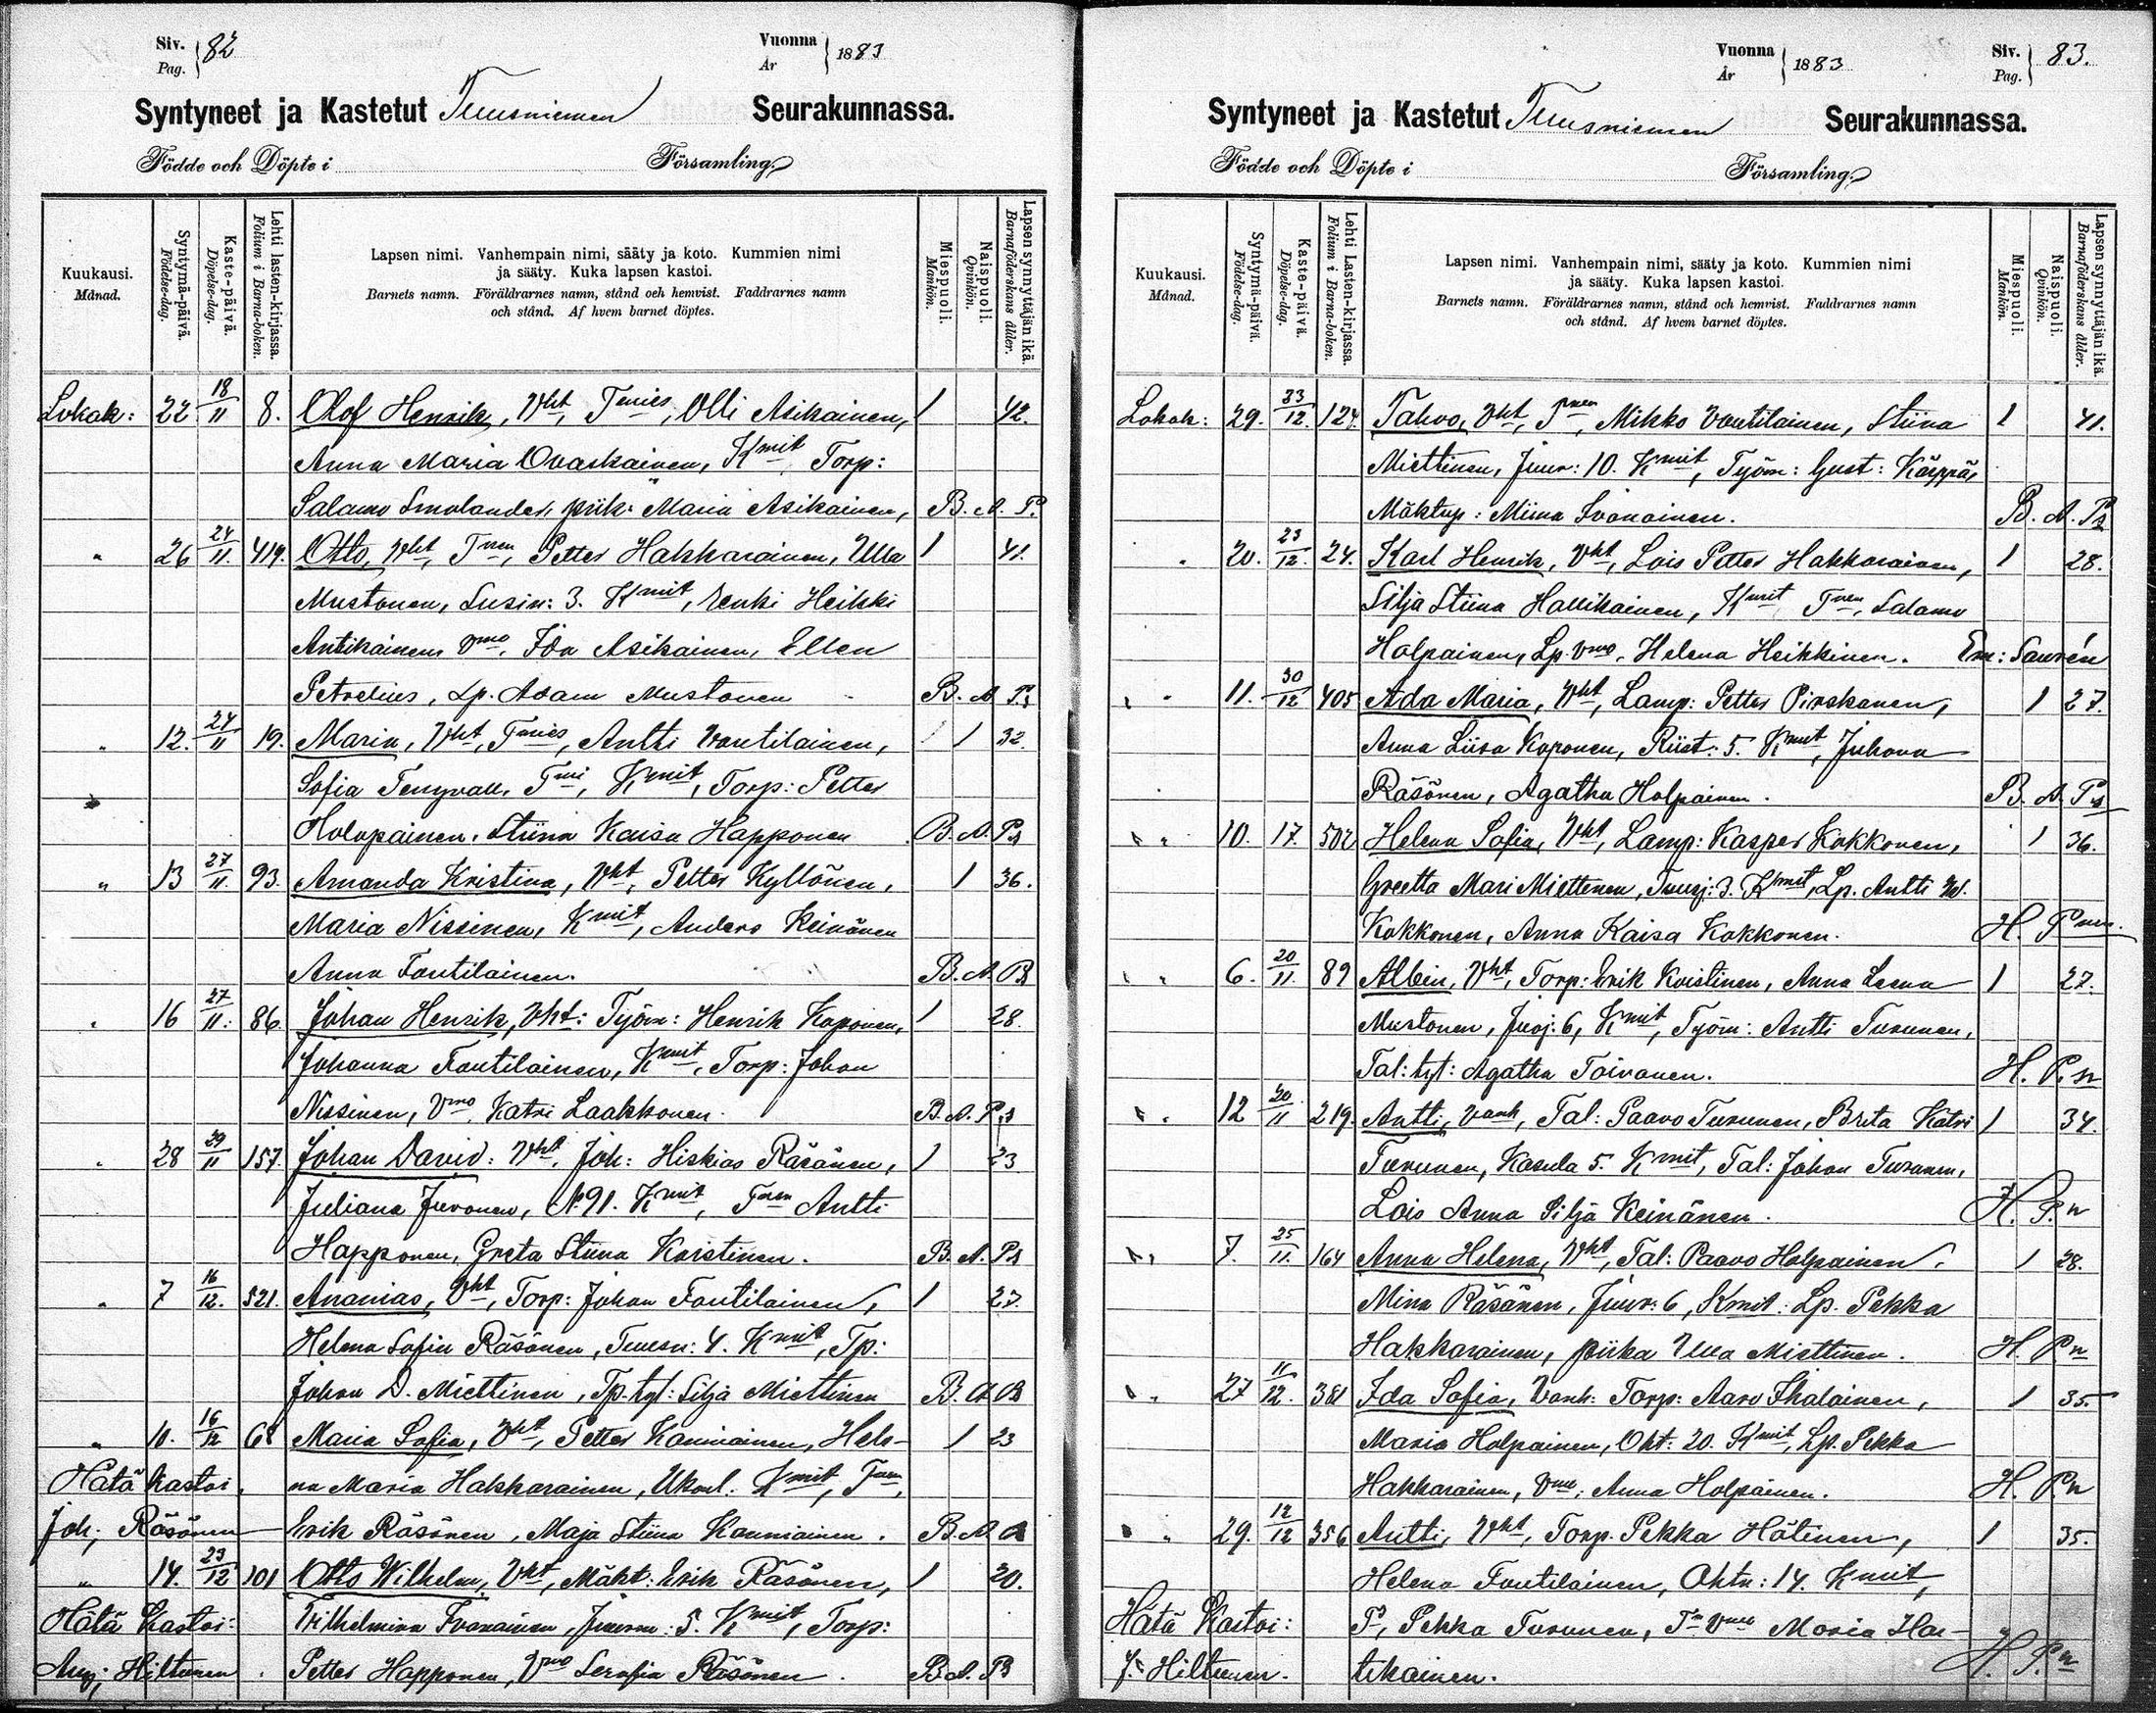 Siv. Pag. 82
Vuonna År 1883
Syntyneet ja Kastetut Tuusniemen Seurakunnassa.
Födde och Döpte i Församling.
Kuukausi. Månad.
Syntymä-päivä. Födelse-dag.
Kaste-päivä. Döpelse-dag.
Lehti lasten-kirjassa. Folium i Barna-boken.
Lapsen nimi. Vanhempain nimi, sääty ja koto. Kummien nimi
ja sääty. Kuka lapsen kastoi.
Barnets namn. Föräldrarnes namn, stånd och hemvist. Faddrarnes namn
och stånd. Af hvem barnet döptes.
Miespuoli. Mankön.
Naispuoli. Qvinkön.
Lapsen synnyttäjän ikä. Barnaföderskans ålder.
Lokak: 22 18/11 8. Olof Henrik, Vht, Tmies, Olli Asikainen, 1 42.
Anna Maria Ovaskainen, Kmit, Torp:
Salamo Smolander, piik: Maria Asikainen, B. A. Ps
" 26 24/11. 419. Otto, Vht, Tnen, Petter Hakkarainen, Ulla 1 41.
Mustonen, Susin: 3. Kmit, renki Heikki
Antikainen, Vmo, Ida Asikainen, Ellen
Petrelius, Lp. Adam Mustonen B. A Ps
" 12. 24/11 19. Maria, Vht, Tmies, Antti Voutilainen, 1 32.
Sofia Tengvall, Tmi, Kmit, Torp: Petter
Holopainen, Stiina Kaisa Happonen B. A. Ps
" 13 27/11. 93. Amanda Kristina, Vht, Petter Kyllönen, 1 36.
Maria Nissinen, Kmit, Anders Keinönen
Anna Foutilainen. B. A. Ps
" 16 27/11. 86. Johan Henrik, Vht: Työm: Henrik Koponen, 1 28.
Johanna Foutilainen, Kmit, Torp: Johan
Nissinen, Vmo, Katri Laakkonen. B. A. Ps
" 28 29/11 157. Johan David: Vht, Joh: Hiskias Räsänen, 1 23
Juliana Juvonen, N 91. Kmit, Tnen Antti
Happonen, Greta Stiina Koistinen. B. A. Ps
" 7 16/12. 521. Ananias, Vht, Torp: Johan Foutilainen, 1 27.
Helena Sofia Räsönen, Tuusn: 4. Kmit, Tp:
Johan D. Miettinen, Tp. tyt: Silja Miettinen B. A Ps
" 10. 16/12 68 Maria Sofia, Vht, Petter Kauniainen, Hele- 1 23
Hätä kastoi na Maria Hakkarainen, Ukonl. Kmit, Tnen,
Joh; Räsönen Erik Räsönen, Maja Stiina Kauniainen. B. A.
" 14. 23/12 101 Otto Wilhelm, Vht, Mäkt: Erik Räsönen, 1 20.
Hätä Kastoi: Wilhelmina Ivanainen, Juurn: 5. Kmit, Torp:
Aug; Hiltunen. Petter Happonen, Vmo Serafia Räsönen. B. A. Ps
Vuonna År 1883
Siv. Pag. 83.
Syntyneet ja Kastetut Tuusniemen Seurakunnassa.
Födde och Döpte i Församling.
Kuukausi. Månad.
Syntymä-päivä. Födelse-dag.
Kaste-päivä. Döpelse-dag.
Lehti Lasten-kirjassa. Folium i Barna-boken.
Lapsen nimi. Vanhempain nimi, sääty ja koto. Kummien nimi
ja sääty. Kuka lapsen kastoi.
Barnets namn. Föräldrarnes namn, stånd och hemvist. Faddrarnes namn
och stånd. Af hvem barnet döptes.
Miespuoli. Mankön.
Naispuoli. Qvinkön.
Lapsen synnyttäjän ikä. Barnaföderskans ålder.
Lokak: 29. 23/12. 124. Tahvo, Vht, Tnen, Mikko Voutilainen, Stiina 1 41.
Miettinen, Juur: 10. Kmit, Työm: Gust: Käppä,
Mäktup: Miina Ivanainen. B. A. Ps
" 20. 23/12. 24. Karl Henrik, Vht, Lois Petter Hakkarainen, 1 28.
Silja Stiina Hallikainen, Kmit Tnen, Salamo
Holpainen, Lp. Vmo, Helena Heikkinen. Em: Saurén
" " 11. 30/12 405 Ada Maria, Vht, Lamp: Petter Pirskanen, 1 27.
Anna Liisa Koponen, Riist: 5. Kmit, Juhana
Räsönen, Agatha Holpainen. B. A. Ps
" " 10. 17. 502 Helena Sofia, Vht, Lamp: Kasper Kokkonen, 1 36.
Greetta Mari Miettenen, Tuusj: 3. Kmit, Lp. Antti W.
Kokkonen, Anna Kaisa Kokkonen. H. Pnen.
" " 6. 20/11. 89 Albin, Vht, Torp: Erik Koistinen, Anna Leena 1 27.
Mustonen, Juoj: 6, Kmit, Työm: Antti Turunen,
Tal: tyt: Agatha Toivanen. H. P.n
" " 12 20/11 219. Antti, Vanh, Tal: Paavo Turunen, Brita Katri 1 34.
Turunen, Kosula 5. Kmit, Tal: Johan Turanen,
Lois Anna Silja Keinänen. H. P.n
" " 7. 25/11. 164 Anna Helena, Vht, Tal: Paavo Holpainen, 1 28.
Mina Räsänen, Juur: 6, Kmit: Lp. Pekka
Hakkarainen, piika Ulla Miettinen. H. P.n
" " 27 11/12. 381 Ida Sofia, Vanh: Torp: Aaro Ihalainen, 1 35.
Maria Holpainen, Oht: 20. Kmit, Lp. Pekka
Hakkarainen, Vmo: Anna Holpainen. H. P.n
" " 29. 12/12 356 Antti, Vht, Torp. Pekka Hätinen, 1 35.
Helena Foutilainen, Ohtn: 14. Kmit,
Hätä Kastoi: Pekka Turunen, Vmo Maria Har-
J. Hiltunen. tikainen. H. P.n